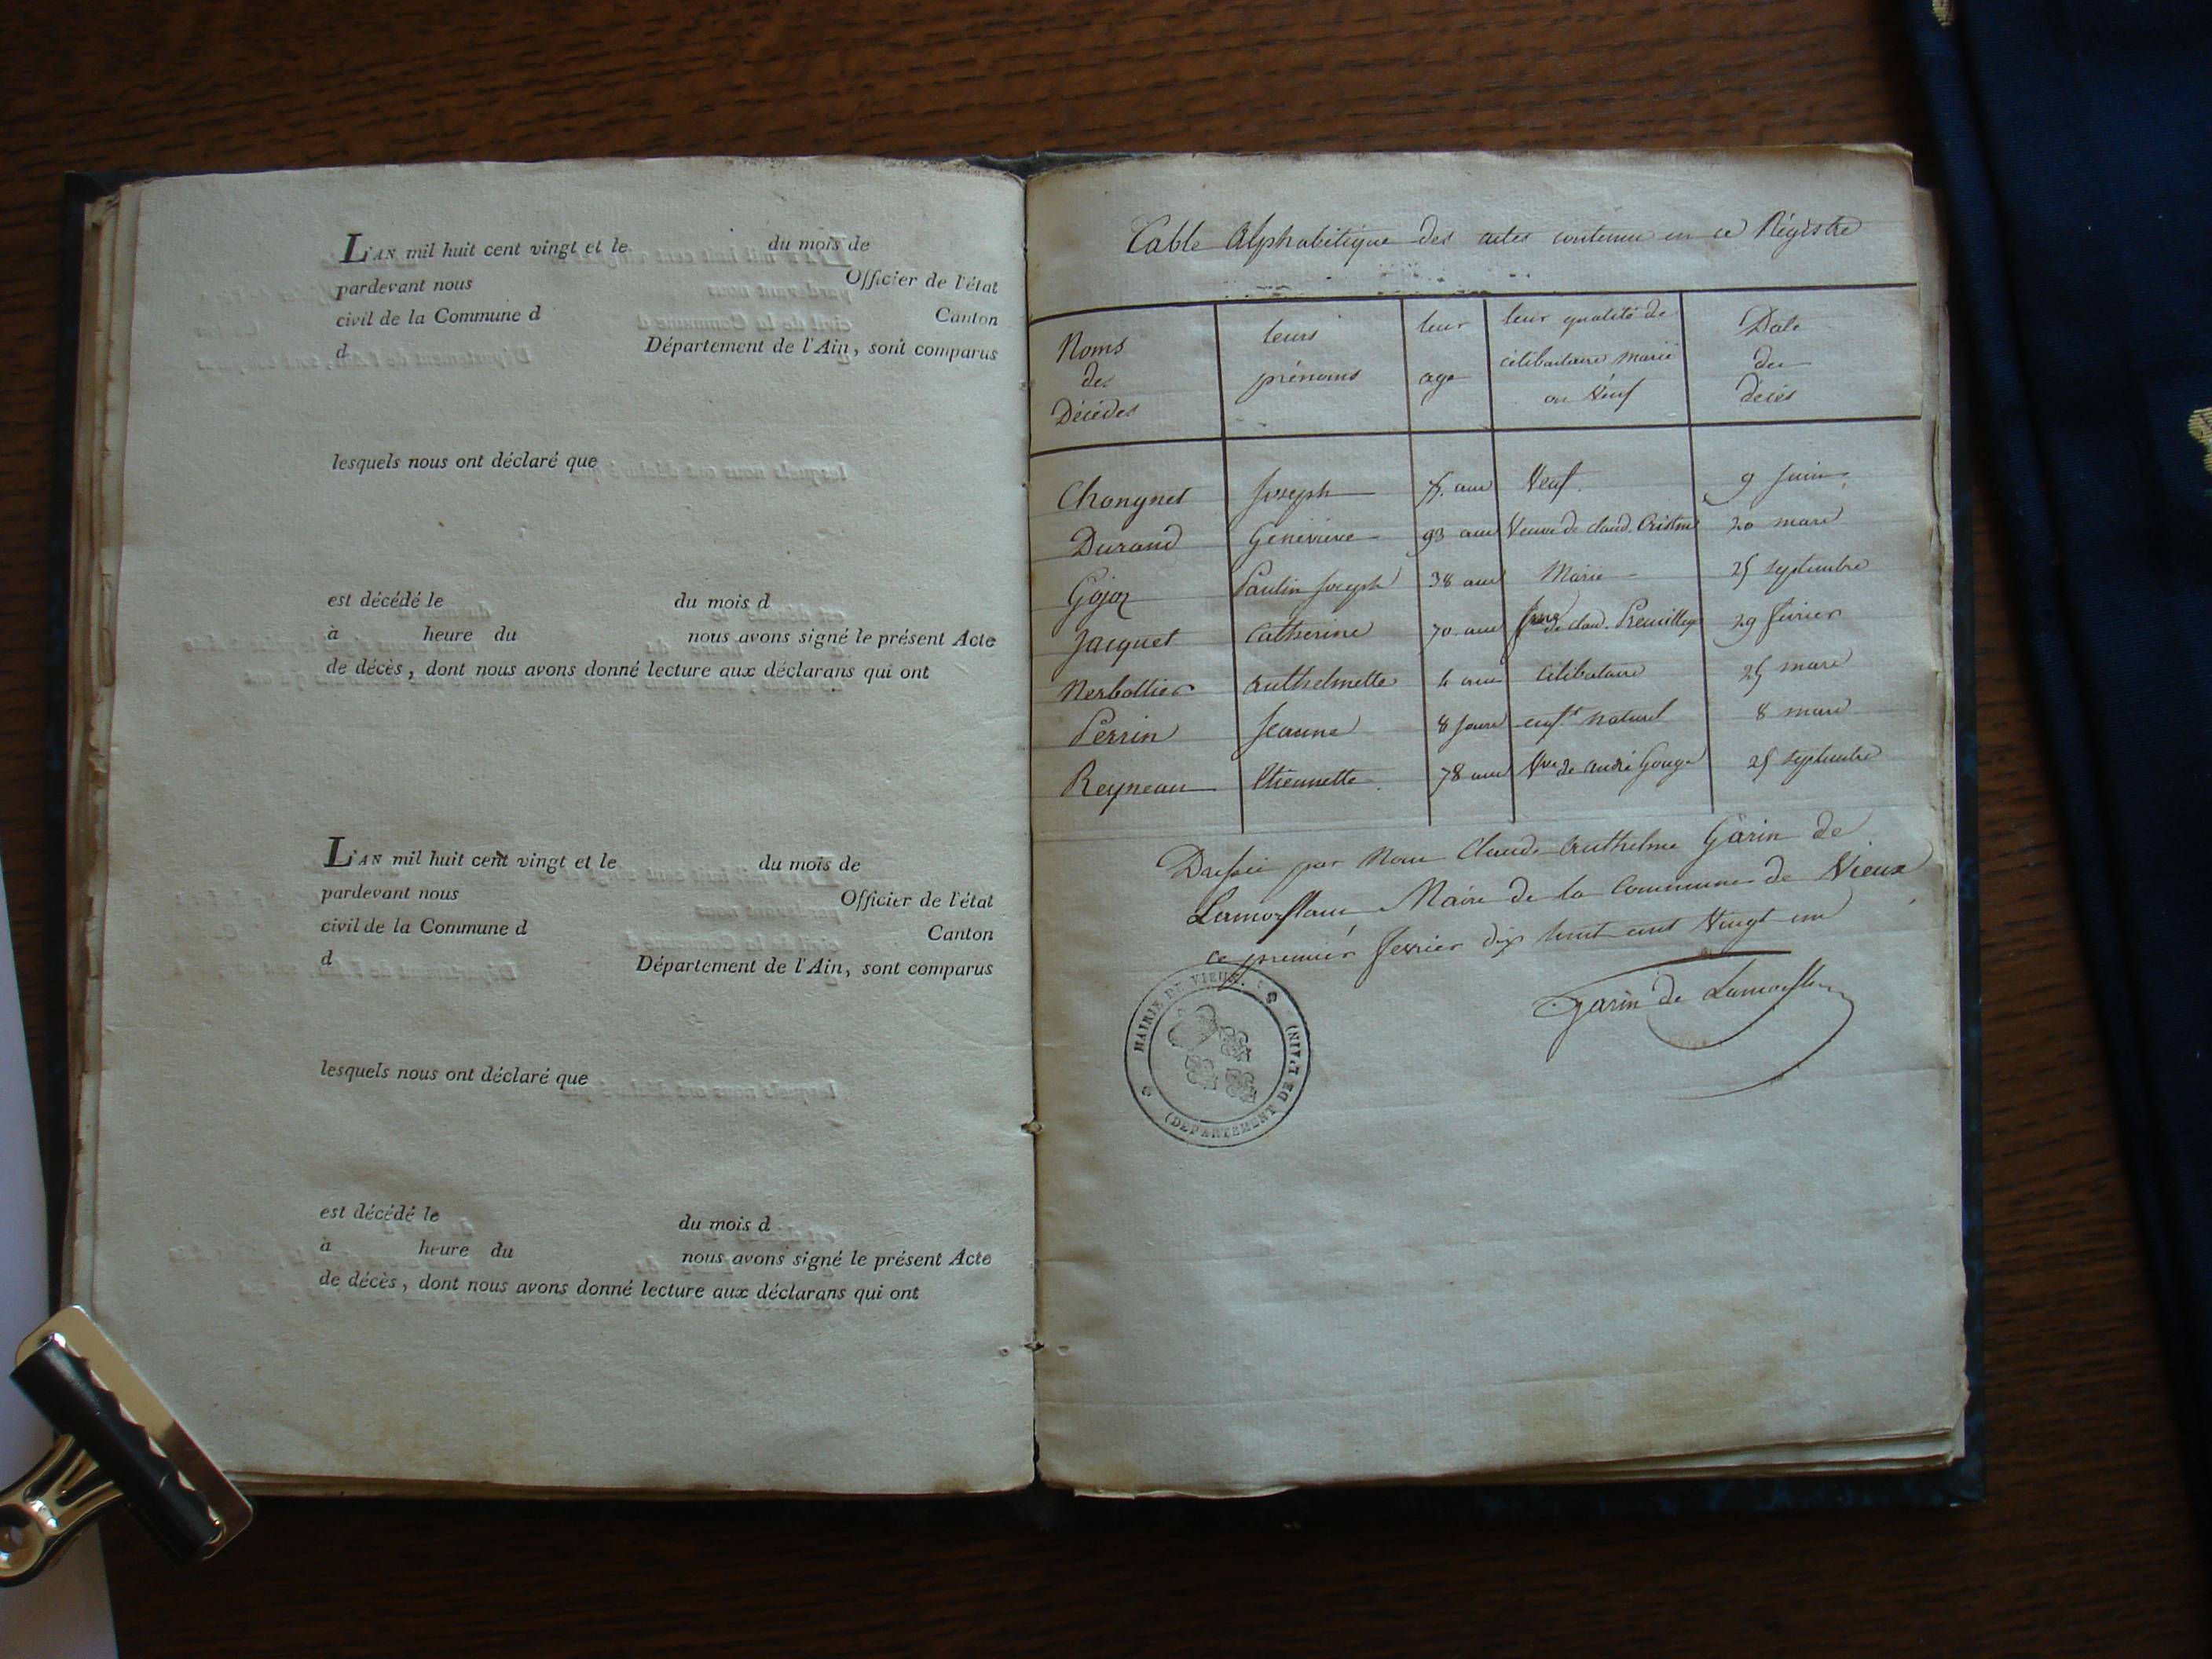 L'AN mil huit cent vingt et le du mois de
pardevant nous Officier de l'état
civil de la Commune d Canton
d Département de l'Ain, sont comparus
lesquels nous ont déclaré que
est décédé le du mois d
à heure du nous avons signé le présent Acte
de décès, dont nous avons donné lecture aux déclarans qui ont
L'AN mil huit cent vingt et le du mois de
pardevant nous Officier de l'état
civil de la Commune d Canton
d Département de l'Ain, sont comparus
lesquels nous ont déclaré que
est décédé le du mois d
à heure du nous avons signé le présent Acte
de décès, dont nous avons donné lecture aux déclarans qui ont
Table Alphabétique des actes contenu en ce Régistre
Noms des Décédés
leurs prénoms
leur age
leur qualité de célibataire marié ou Veuf
Date du décès
Joseph ans Veuf 9 Juin
Durand Geneviève 93 ans Veuve de Claud. 20 mars
Gojoz Paulin Joseph 38 ans Marié 25 septembre
Jacquet Catherine 70 ans de Claud. 29 février
Nerbollier Anthelmette 4 ans Célibataire 25 mars
Perrin Jeanne 8 Jours enft naturel 8 mars
Reyneau Etiennette 78 ans Vve de André Gouge 25 septembre
Dressée par Nous Claude Anthelme Garin de
Lamorflans Maire de la Commune de Vieux
ce premier fevrier dix huit cent Vingt un
Garin de Lamorflans
MAIRIE DE VIEUX
(DÉPARTEMENT DE L'AIN)